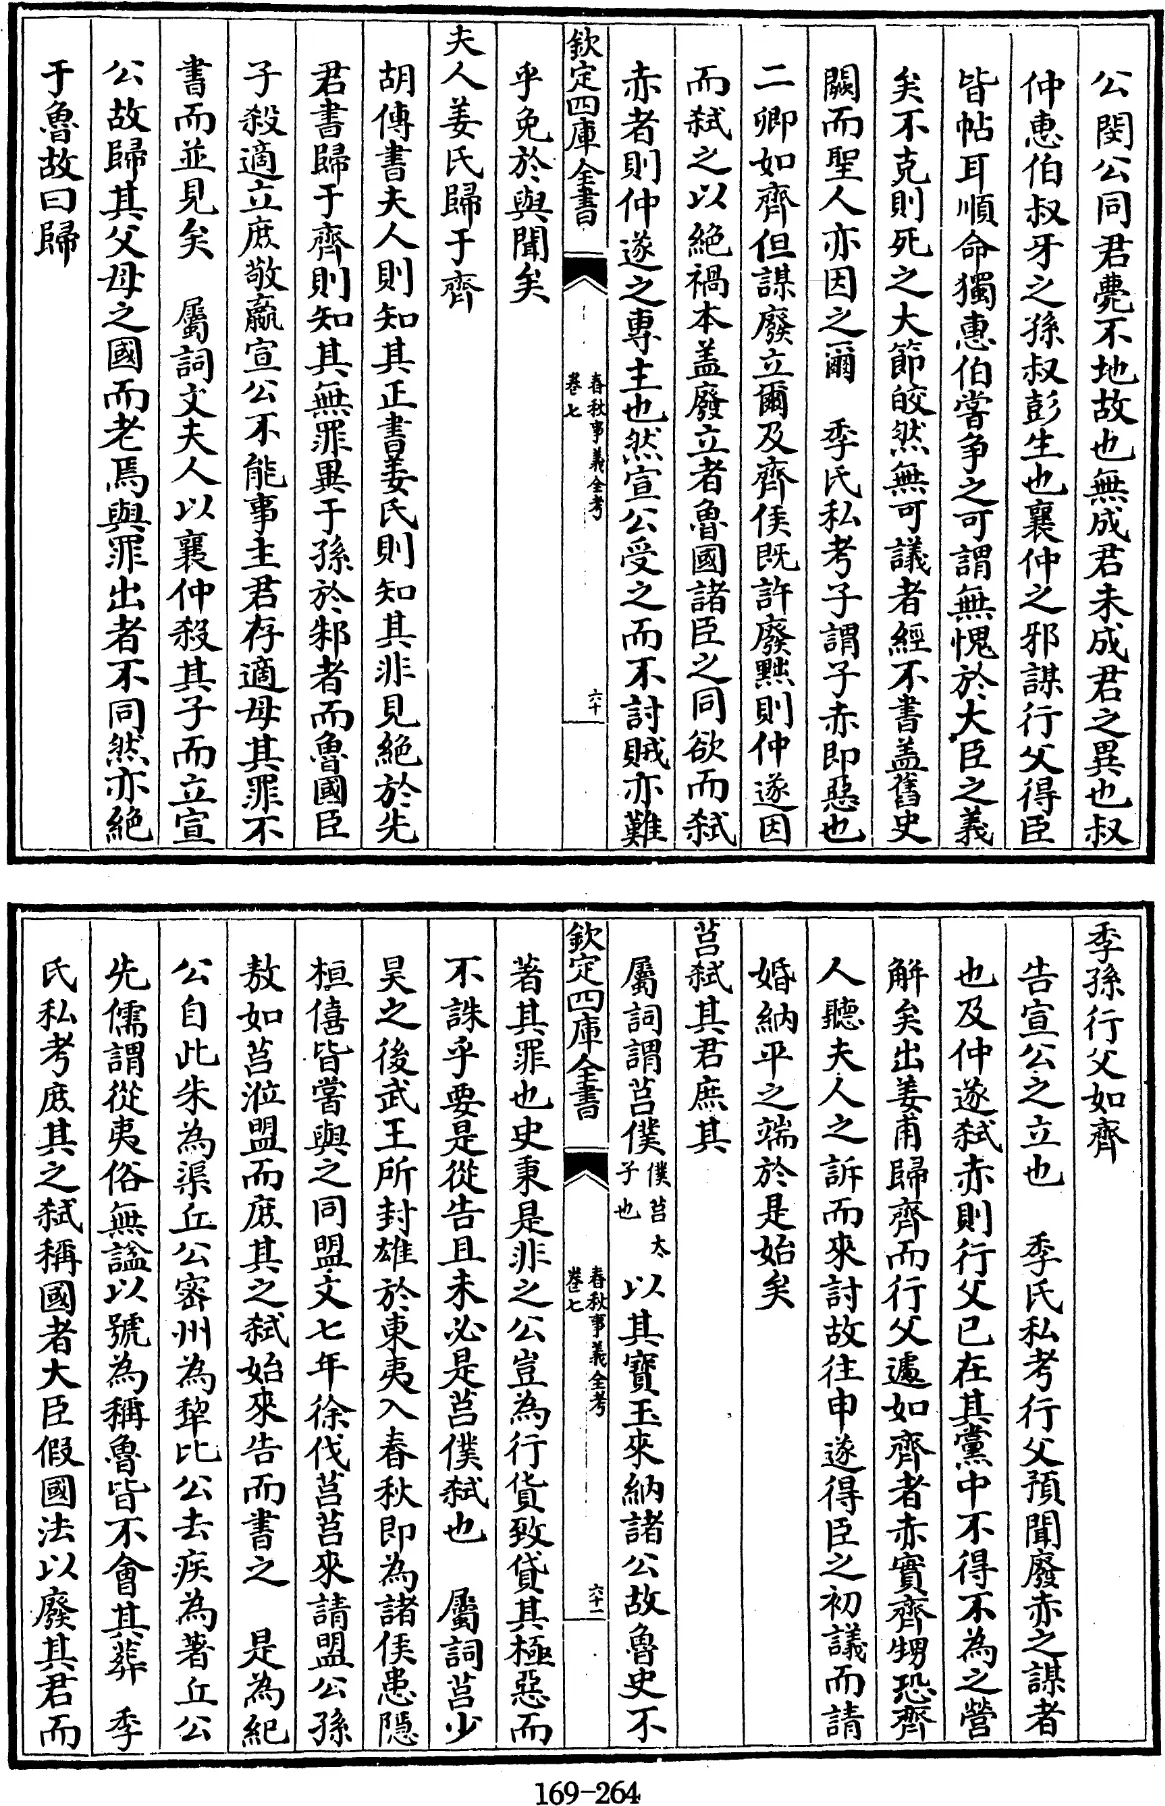 公閔公同君薨不地故也無成君未成君之異也叔
仲惠伯叔牙之孫叔彭生也襄仲之邪謀行父得臣
皆帖耳順命獨惠伯嘗争之可謂無愧於大臣之義
矣不克則死之大節皎然無可議者經不書盖舊史
闕而聖人亦因之爾　季氏私考子謂子赤即惡也
二卿如齊但謀廢立爾及齊侯既許廢黜則仲遂因
而弑之以絶禍本盖廢立者魯國諸臣之同欲而弑
赤者則仲遂之專主也然宣公受之而不討賊亦難
欽定四庫全書
春秋事義全考
卷七
六十
乎免於與聞矣
夫人姜氏歸于齊
胡傳書夫人則知其正書姜氏則知其非見絶於先
君書歸于齊則知其無罪異于孫於邾者而魯國臣
子殺適立庶敬嬴宣公不能事主君存適母其罪不
書而並見矣　屬詞文夫人以襄仲殺其子而立宣
公故歸其父母之國而老焉與罪出者不同然亦絶
于魯故曰歸
季孫行父如齊
告宣公之立也　季氏私考行父預聞廢赤之謀者
也及仲遂弑赤則行父已在其黨中不得不為之營
解矣出姜甫歸齊而行父遽如齊者赤實齊甥恐齊
人聽夫人之訴而來討故往申遂得臣之初議而請
婚納平之端於是始矣
莒弑其君庶其
屬詞謂莒僕僕莒太子也以其寶玉來納諸公故魯史不
欽定四庫全書
春秋事義全考
卷七
六十一
著其罪也史秉是非之公豈為行貨致貸其極惡而
不誅乎要是從告且未必是莒僕弑也　屬詞莒少
昊之後武王所封雄於東夷入春秋即為諸侯患隱
桓僖皆嘗與之同盟文七年徐伐莒莒來請盟公孫
敖如莒涖盟而庶其之弑始來告而書之　是為紀
公自此朱為渠丘公密州為犂比公去疾為著丘公
先儒謂從夷俗無謚以號為稱魯皆不會其葬　季
氏私考庶其之弑稱國者大臣假國法以廢其君而
169-264